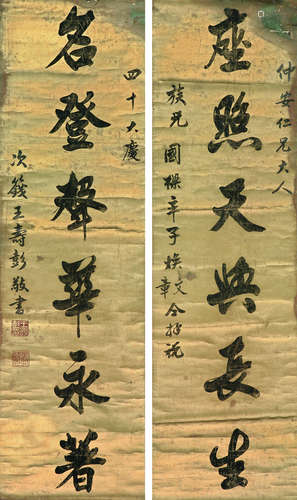 仲安仁兄大人
座照天與長生
族兄國樑率子煥文章仝拜祝
四十大慶
名登聲華永著
次籛王壽彭敬書